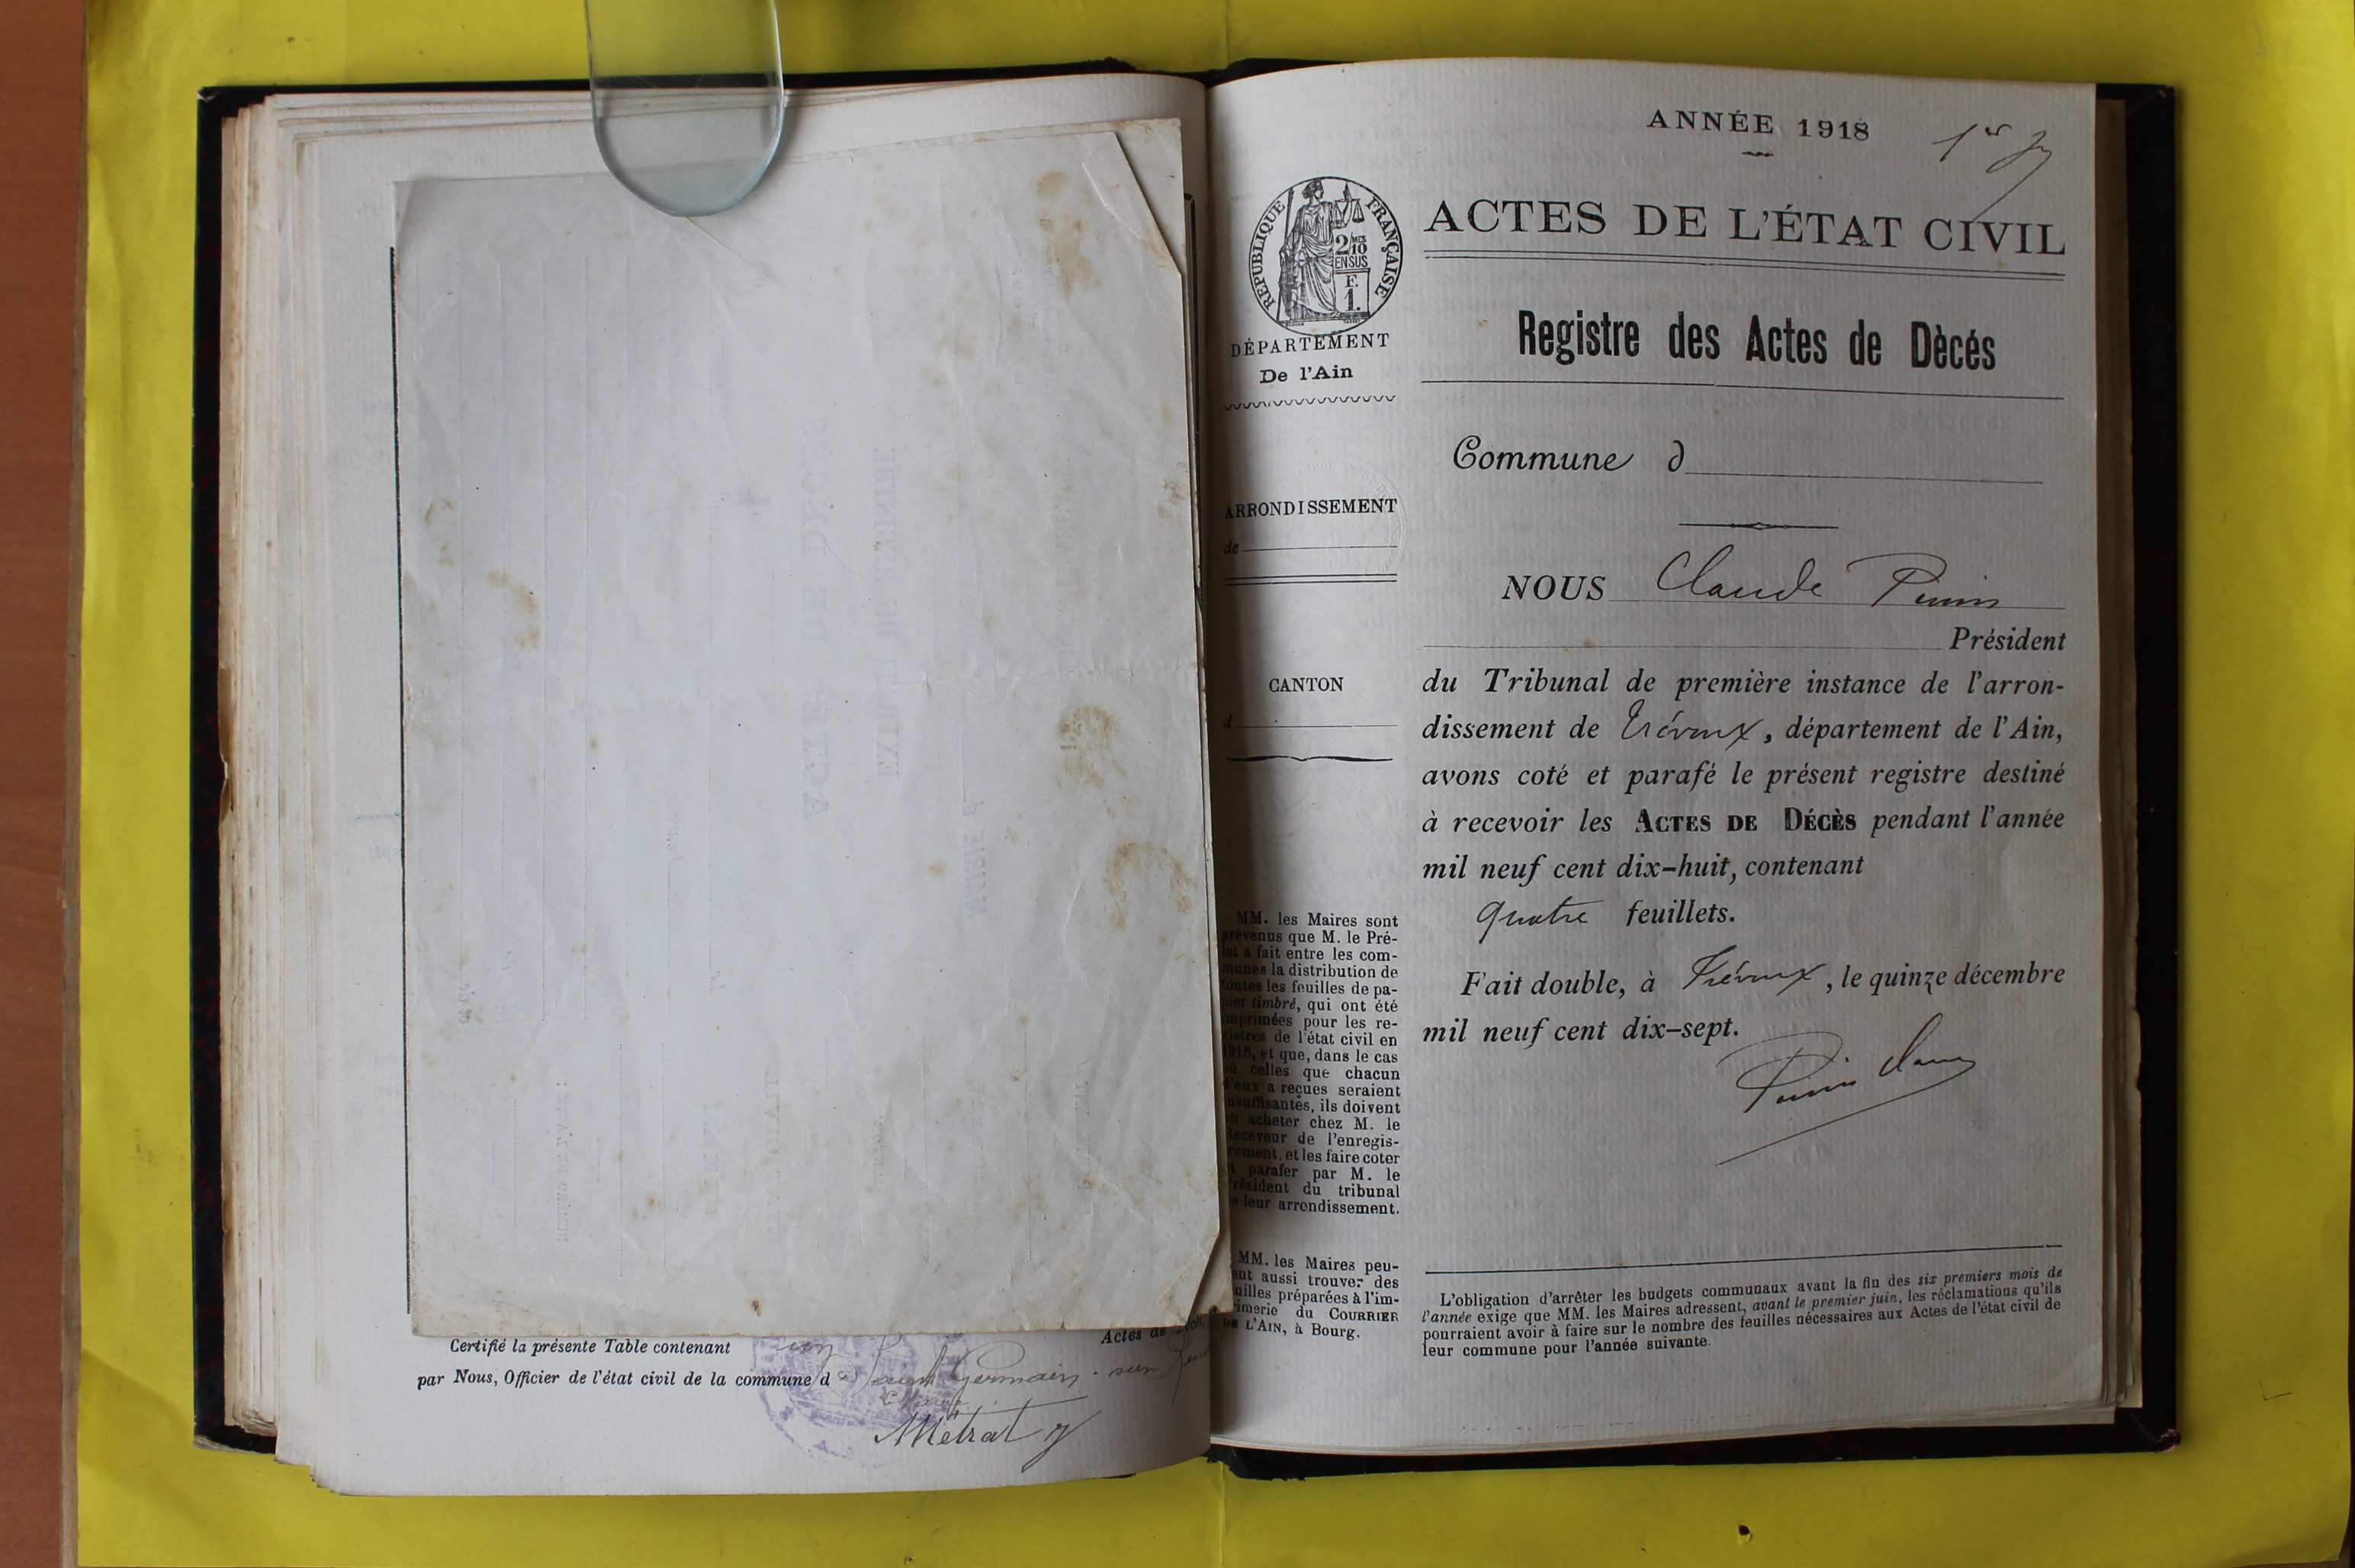 Certifié la présente Table contenant un Actes de Décès,
par Nous, Officier de l'état civil de la commune d e Saint Germain-sur
Le Maire
Métrat
ANNÉE 1918
1er
RÉPUBLIQUE FRANÇAISE
2/10MES
EN SUS
F.
1.
DÉPARTEMENT
De l'Ain
ARRONDISSEMENT
de
CANTON
d
MM. les Maires sont
prévenus que M. le Pré-
fet a fait entre les com-
munes la distribution de
toutes les feuilles de pa-
pier timbré, qui ont été
imprimées pour les re-
gistres de l'état civil en
1918, et que, dans le cas
où celles que chacun
d'eux a reçues seraient
insuffisantes, ils doivent
en acheter chez M. le
Receveur de l'enregis-
trement, et les faire coter
et parafer par M. le
Président du tribunal
de leur arrondissement.
MM. les Maires peu-
vent aussi trouver des
feuilles préparées à l'im-
primerie du COURRIER
DE L'AIN, à Bourg.
ACTES DE L'ÉTAT CIVIL
Registre des Actes de Dècés
Commune d
NOUS Claude
Président
du Tribunal de première instance de l'arron-
dissement de Trévoux, département de l'Ain,
avons coté et parafé le présent registre destiné
à recevoir les ACTES DE DÉCÈS pendant l'année
mil neuf cent dix-huit, contenant
quatre feuillets.
Fait double, à Trévoux, le quinze décembre
mil neuf cent dix-sept.
L'obligation d'arrêter les budgets communaux avant la fin des six premiers mois de
l'année exige que MM. les Maires adressent, avant le premier juin, les réclamations qu'ils
pourraient avoir à faire sur le nombre des feuilles nécessaires aux Actes de l'état civil de
leur commune pour l'année suivante.